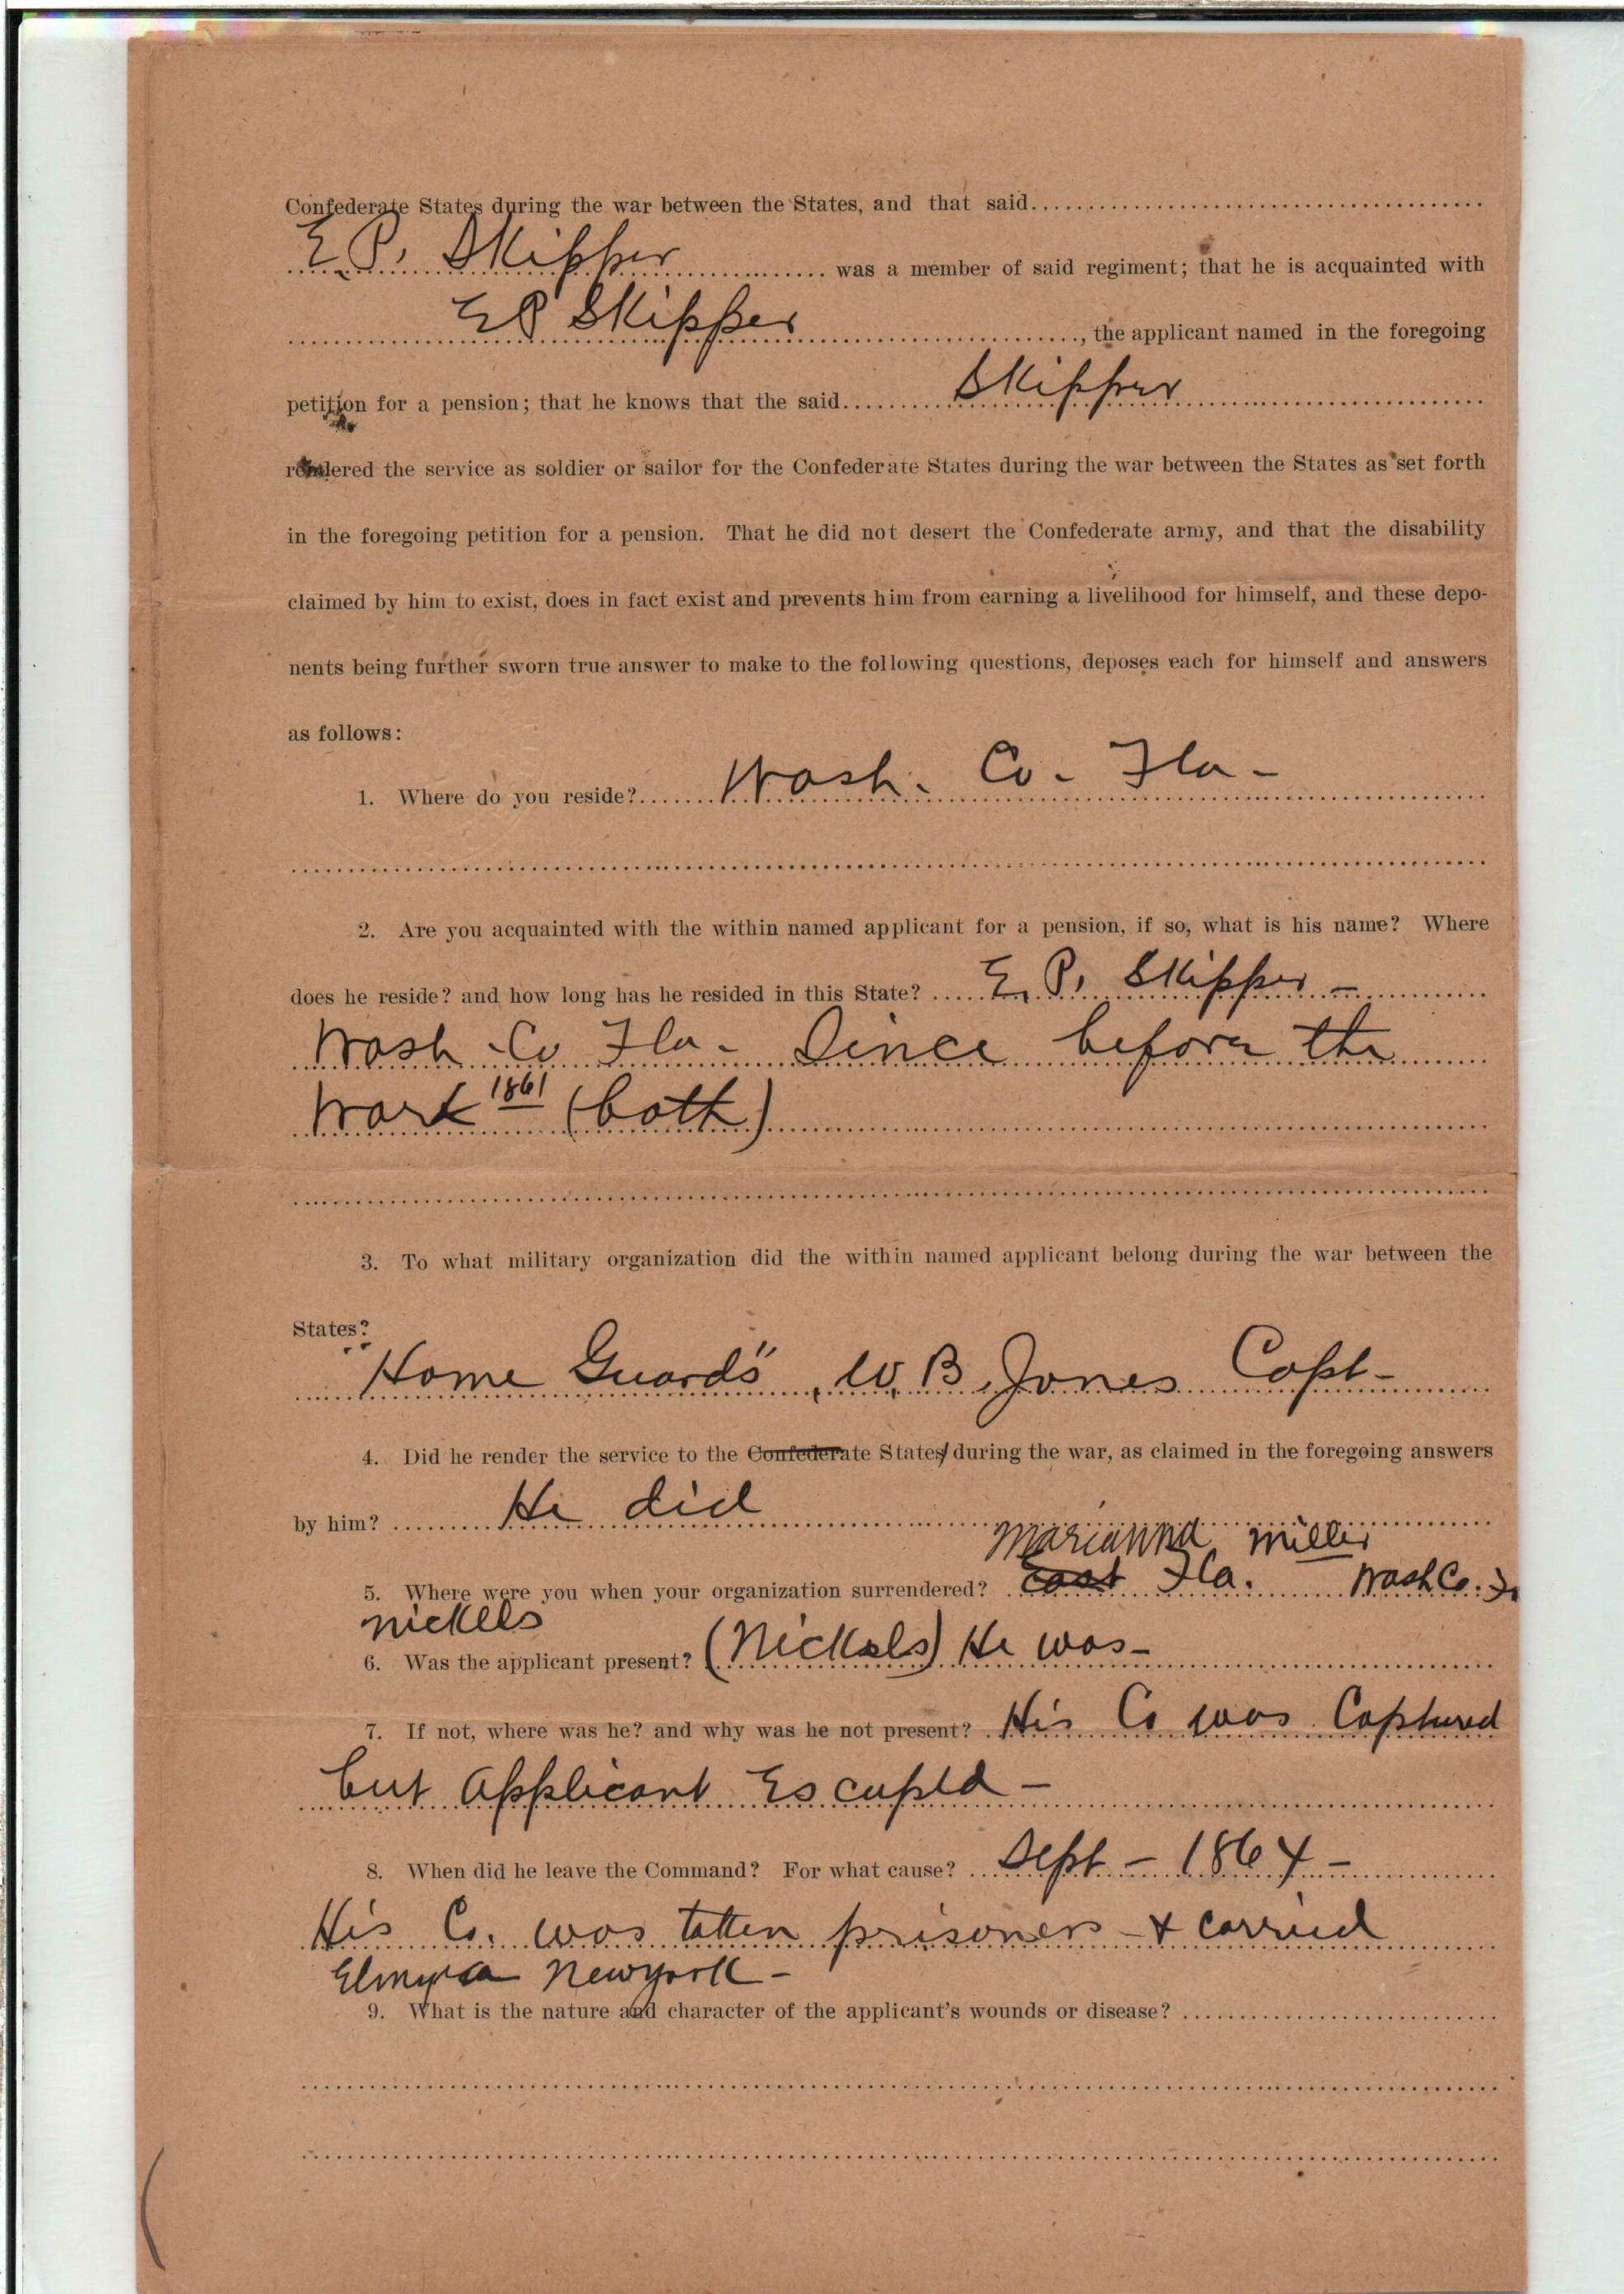 Confederate States during the war between the States, and that said
E P. Skipper was a member of said regiment; that he is acquainted with
E P Skipper, the applicant named in the foregoing
petition for a pension; that he knows that the said Skipper
rendered the service as soldier or sailor for the Confederate States during the war between the States as set forth
in the foregoing petition for a pension. That he did not desert the Confederate army, and that the disability
claimed by him to exist, does in fact exist and prevents him from earning a livelihood for himself, and these depo-
nents being further sworn true answer to make to the following questions, deposes each for himself and answers
as follows:
1. Where do you reside? Wash. Co - Fla -
2. Are you acquainted with the within named applicant for a pension, if so, what is his name? Where
does he reside? and how long has he resided in this State? E. P. Skipper -
Wash - Co Fla - Since before the
1861 (both)
3. To what military organization did the within named applicant belong during the war between the
States?
Home Guards", W. B. Jones Capt -
4. Did he render the service to the Confederate States during the war, as claimed in the foregoing answers
by him? He did
Marianna Miller
5. Where were you when your organization surrendered? East Fla. Wash Co.
Nickels
6. Was the applicant present? (Nickels) He was -
7. If not, where was he? and why was he not present? His Co was Captured
but Applicant Escaped -
8. When did he leave the Command? For what cause? Sept - 1864 -
His Co. was taken prisoners & carried
Elmyra Newyork -
9. What is the nature and character of the applicant's wounds or disease?